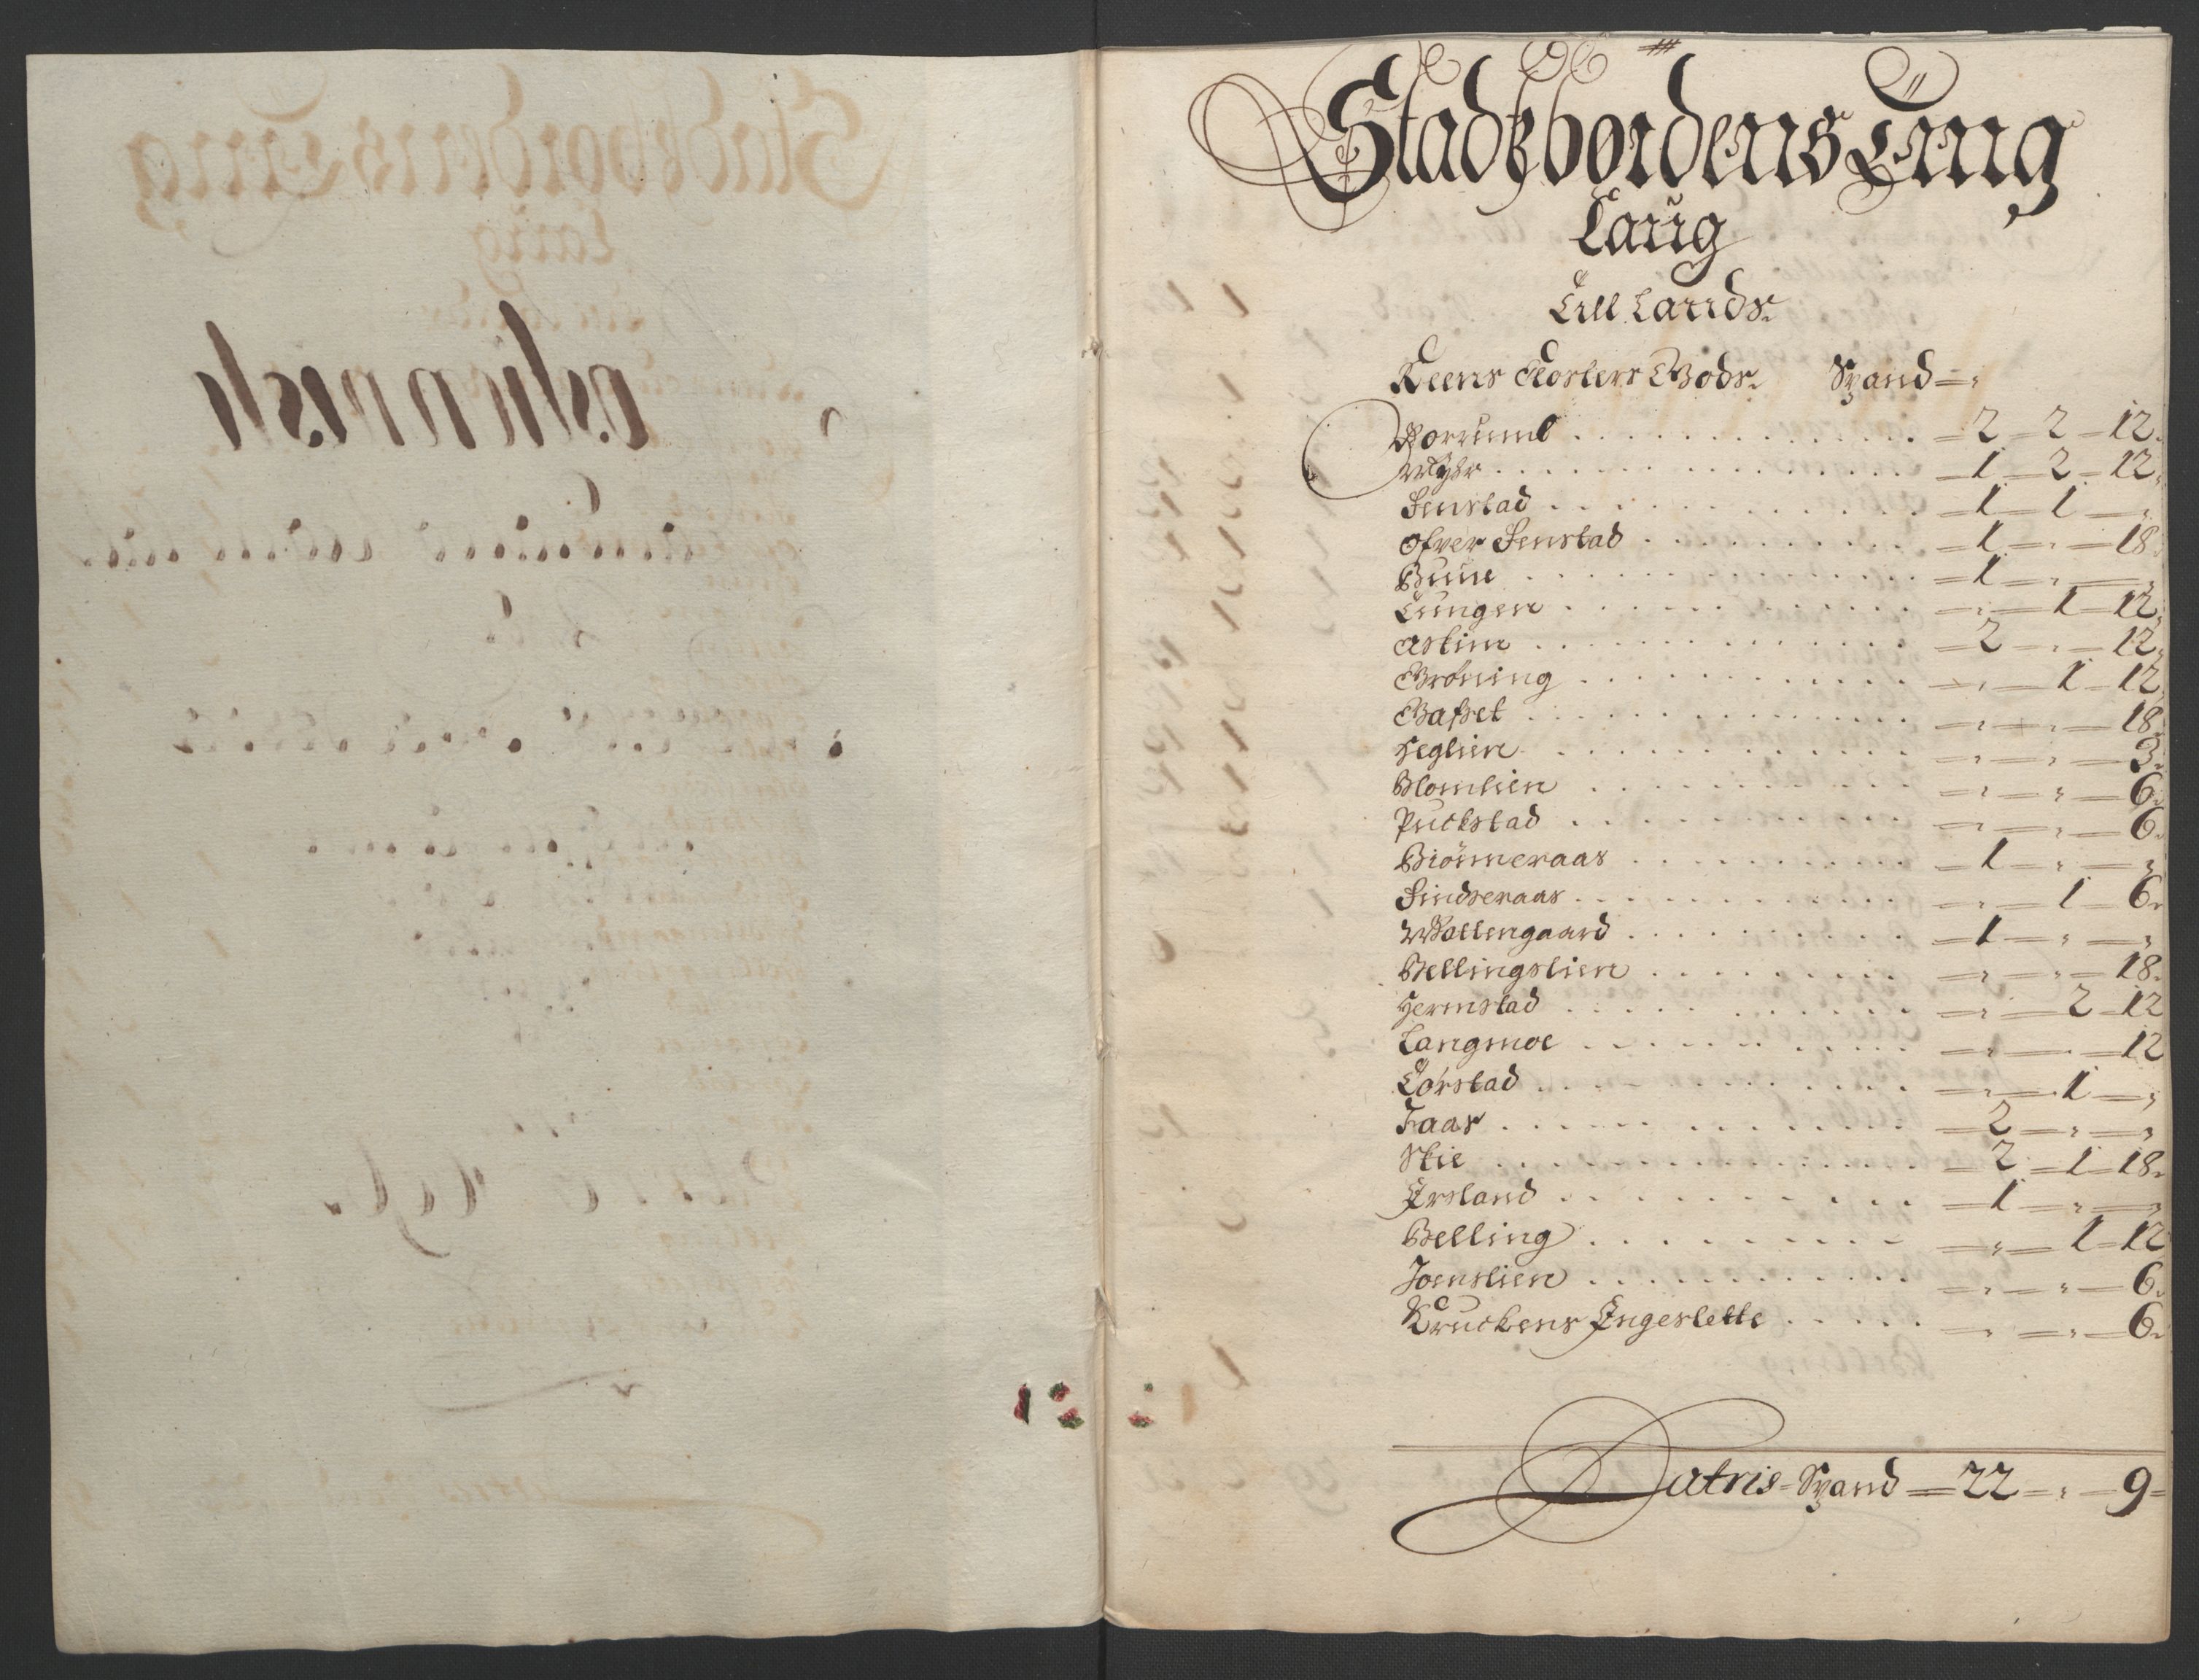 Stadtzbørdens Ting
Laug
Till Lands
Reens Closters Gods. Spand
Worrumb . . . =2 2 12.
Myhr . . . 1 2 12
Fenstad . . . 1 1 „
Ofver Fenstad . . . 1 „ 18
Buue . . . 1 „ „
Tungen . . . „ 1 12
Astun . . . 2 „ 12
Grøning . . . „ 1 12
Gafset . . . „ „ 18
Heglien . . . „ „ 3
Blomlien . . . „ „ 6
Puckstad . . . „ „ 6
Biörneraas . . . 1 „ „
Sindseraas . . . „ 1 6
Wollengaard . . . 1 „ „
Bellingslien . . . „ „ 18
Hermstad . . . „ 2 12
Langmoe . . . „ „ 12
Tørstad . . . „ 1 „
Faas . . . 2 „ „
Skie . . . 2 1 18
Ersland . . . 1 „ „
Belling . . . „ 1 12
Joenslien . . . „ „ 6
Kruckens Engeslette . . . „ „ 6
Latris Spand 22 „ 9